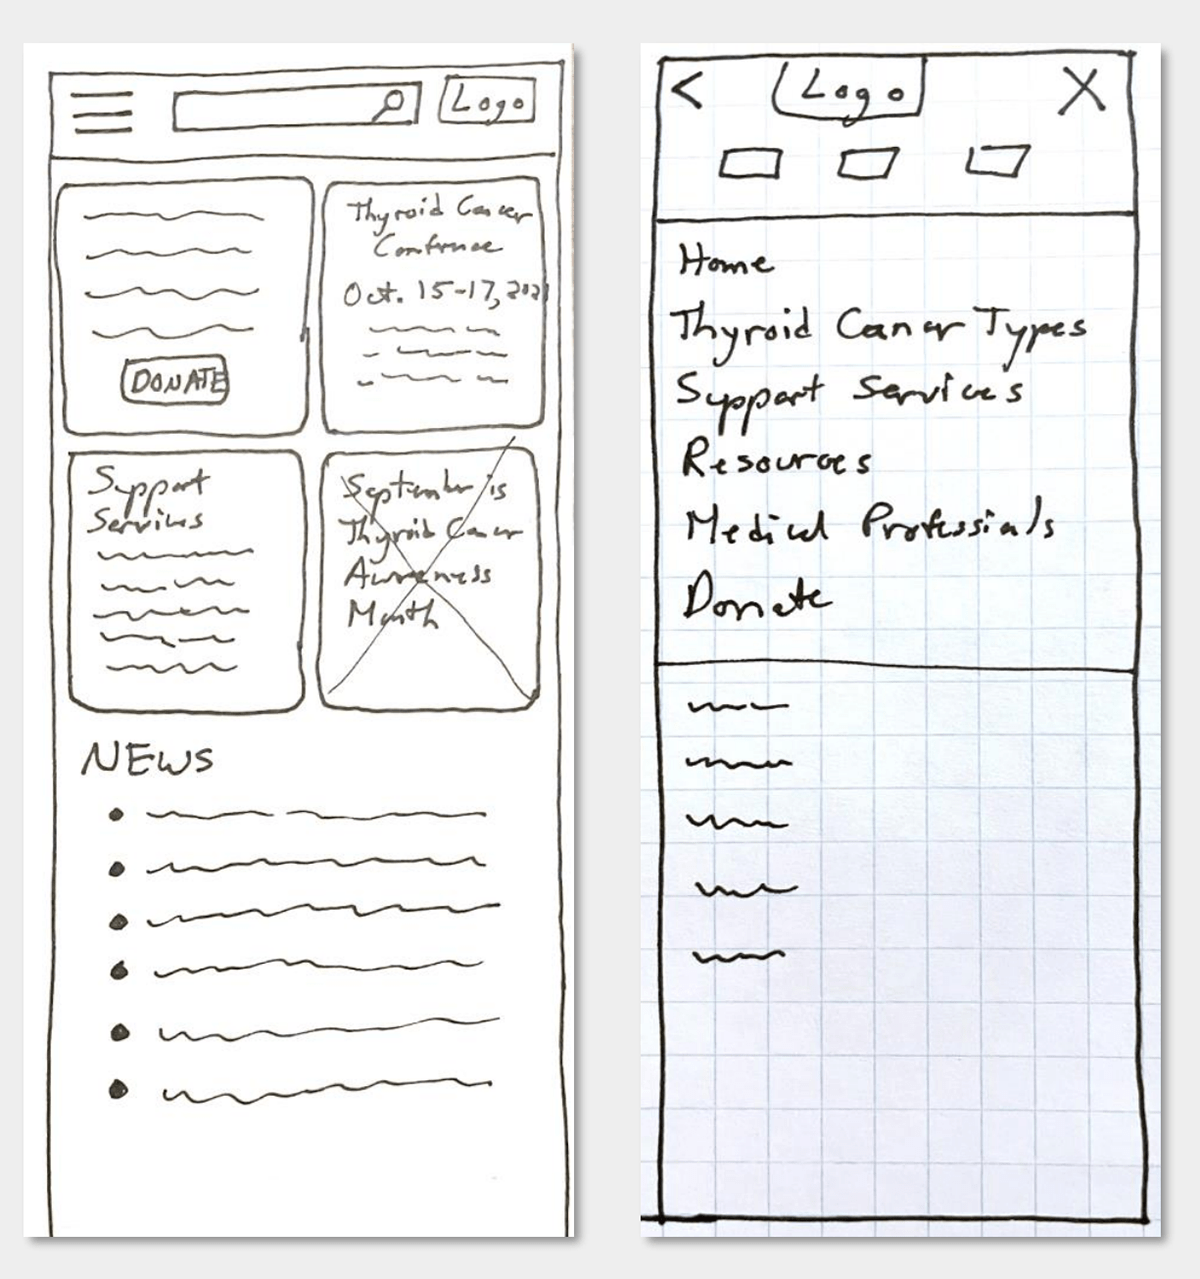 Logo
DONATE
Thyroid Cancer
Conference
Oct. 15-17, 2021
Support
Services
September is
Thyroid Cancer
Awareness
Month
NEWS
Logo
Home
Thyroid Cancer Types
Support Services
Resources
Medical Professionals
Donate